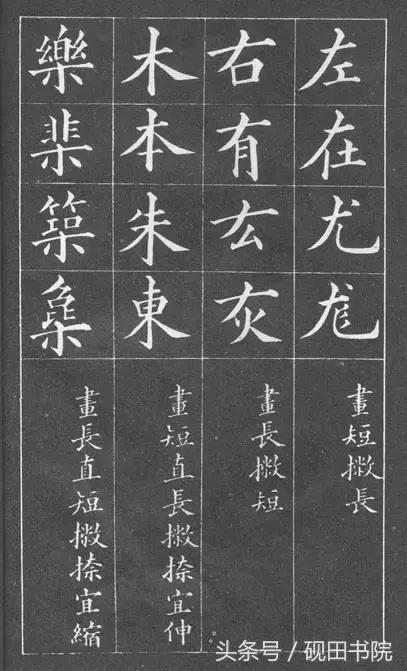 左在尤尨
畫短撇長
右有厷灰
畫長撇短
木本朱東
畫短直長撇捺宜伸
樂棐築
畫長直短撇捺宜縮
头条号/砚田书院